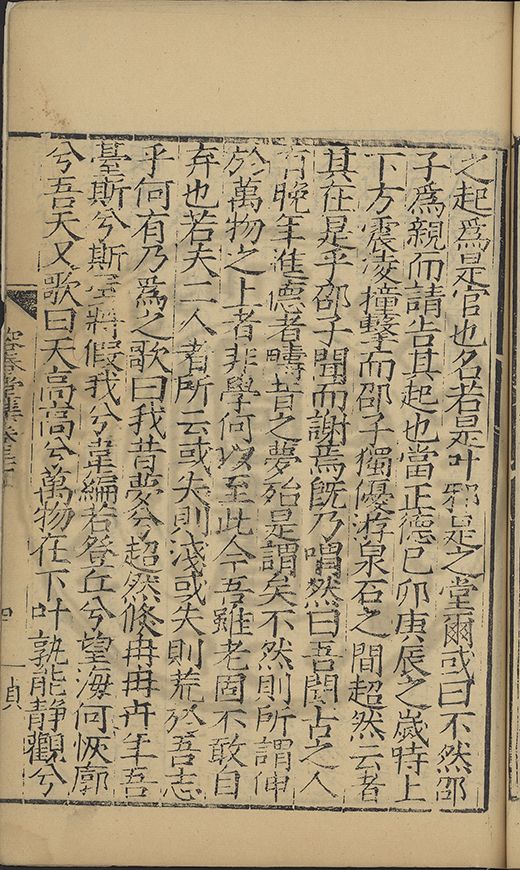 之起爲是官也名若是叶邪是之堂爾或曰不然邵
子爲親而請告其起也當正德己卯庚辰之嵗特上
下方震凌撞擊而邵子獨優游泉石之間超然云者
其在是乎邵子聞而謝焉旣乃喟然曰吾聞古之人
有晚年進德者疇昔之夢殆是謂矣不然則所謂伸
於萬物之上者非學何以至此今吾雖老固不敢自
弃也若夫二人者所云或失則淺或失則荒於吾志
乎何有乃爲之歌曰我昔夢兮超然倐冉冉卉年吾
臺斯兮斯堂將假我兮韋編若登丘兮望海何恢廓
兮吾天又歌曰天高高兮萬物在下叶孰能静觀兮
容春堂集卷
四
貞